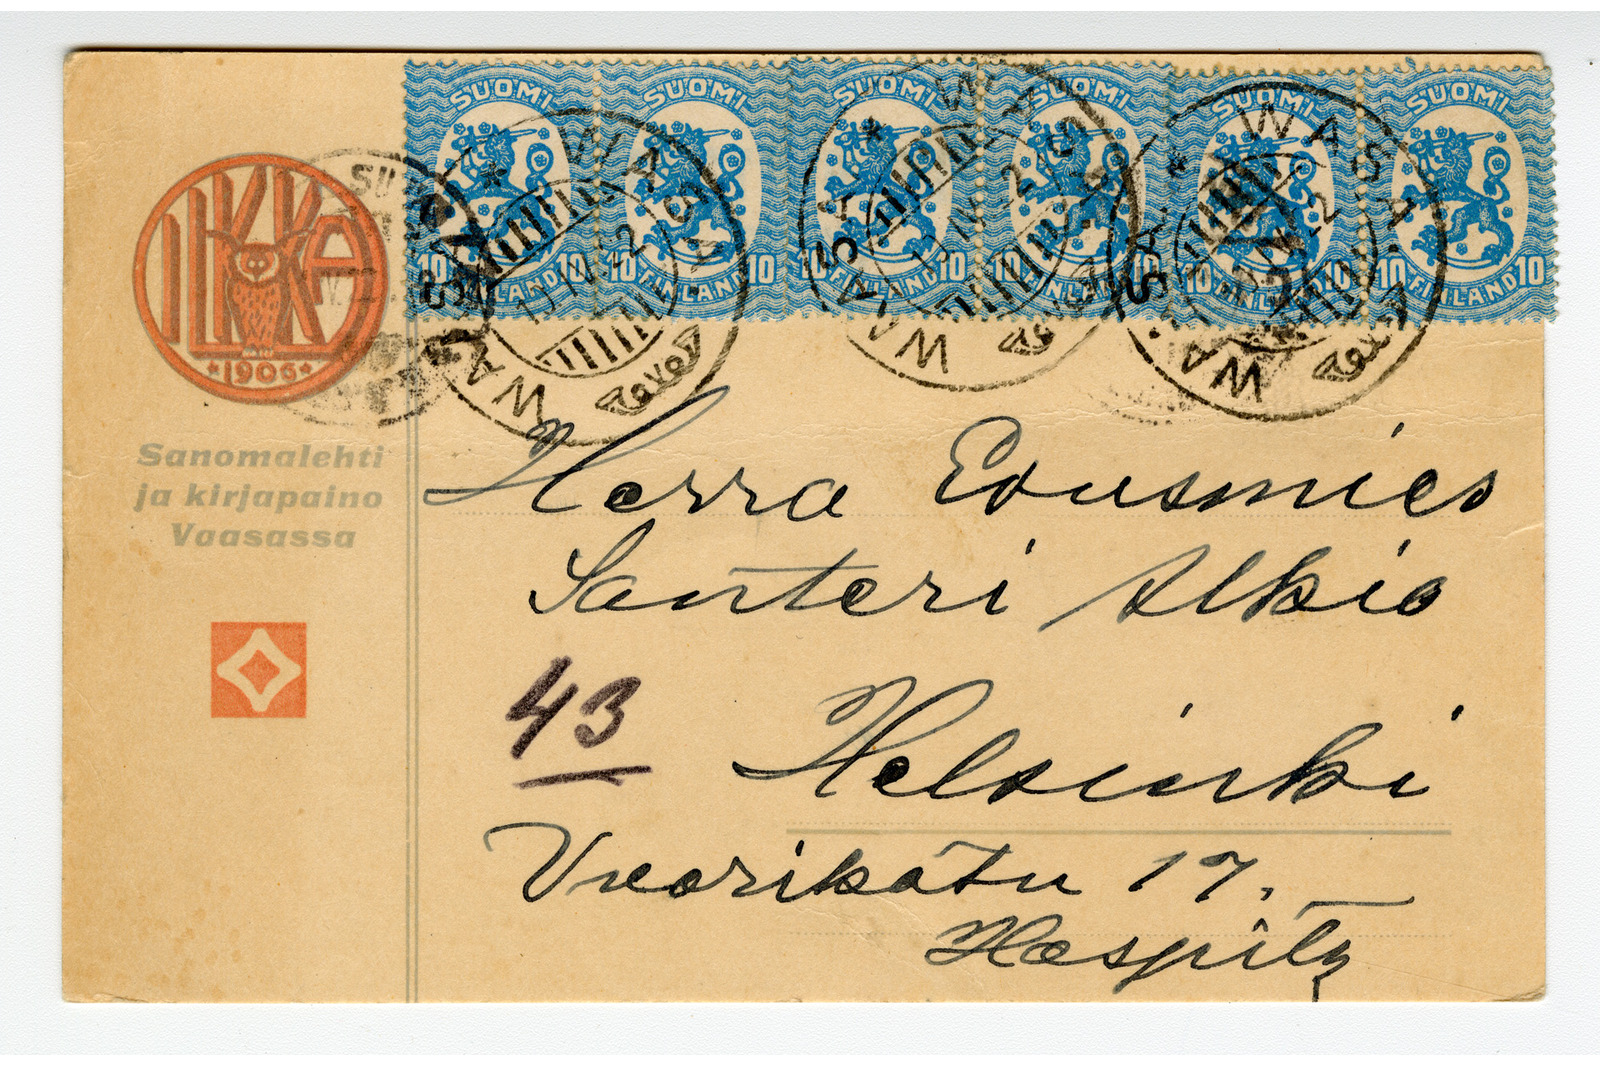 SUOMI SUOMI SUOMI SUOMI SUOMI SUOMI
10 FINLAND 10 10 FINLAND 10 10 FINLAND 10 10 FINLAND 10 10 FINLAND 10 10 FINLAND 10
WASA VAASA
WASA VAASA
WASA VAASA
ILKKA
*1906*
Sanomalehti
ja kirjapaino
Vaasassa
Herra Edusmies
Santeri Alkio
43
Helsinki
Vuorikatu 17.
Hospitz